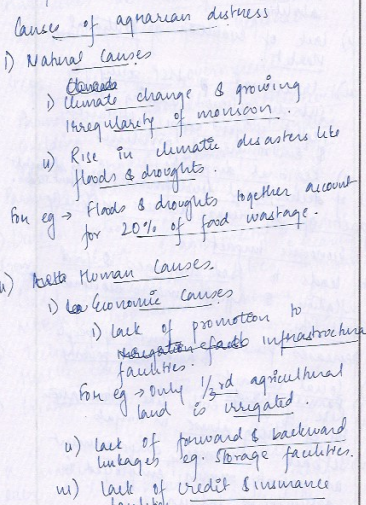 Causes of agrarian distress
i) Natural Causes
i) Climate change & growing
irregularity of monsoon.
ii) Rise in climatic disasters like
floods & droughts.
For eg → Floods & droughts together account
for 20% of food wastage.
ii) Human Causes.
i) Economic Causes
i) lack of promotion to
infrastructural
facilities.
For eg → Only 1/3rd agricultural
land is irrigated.
ii) lack of forward & backward
linkages eg. storage facilities.
iii) lack of credit & insurance